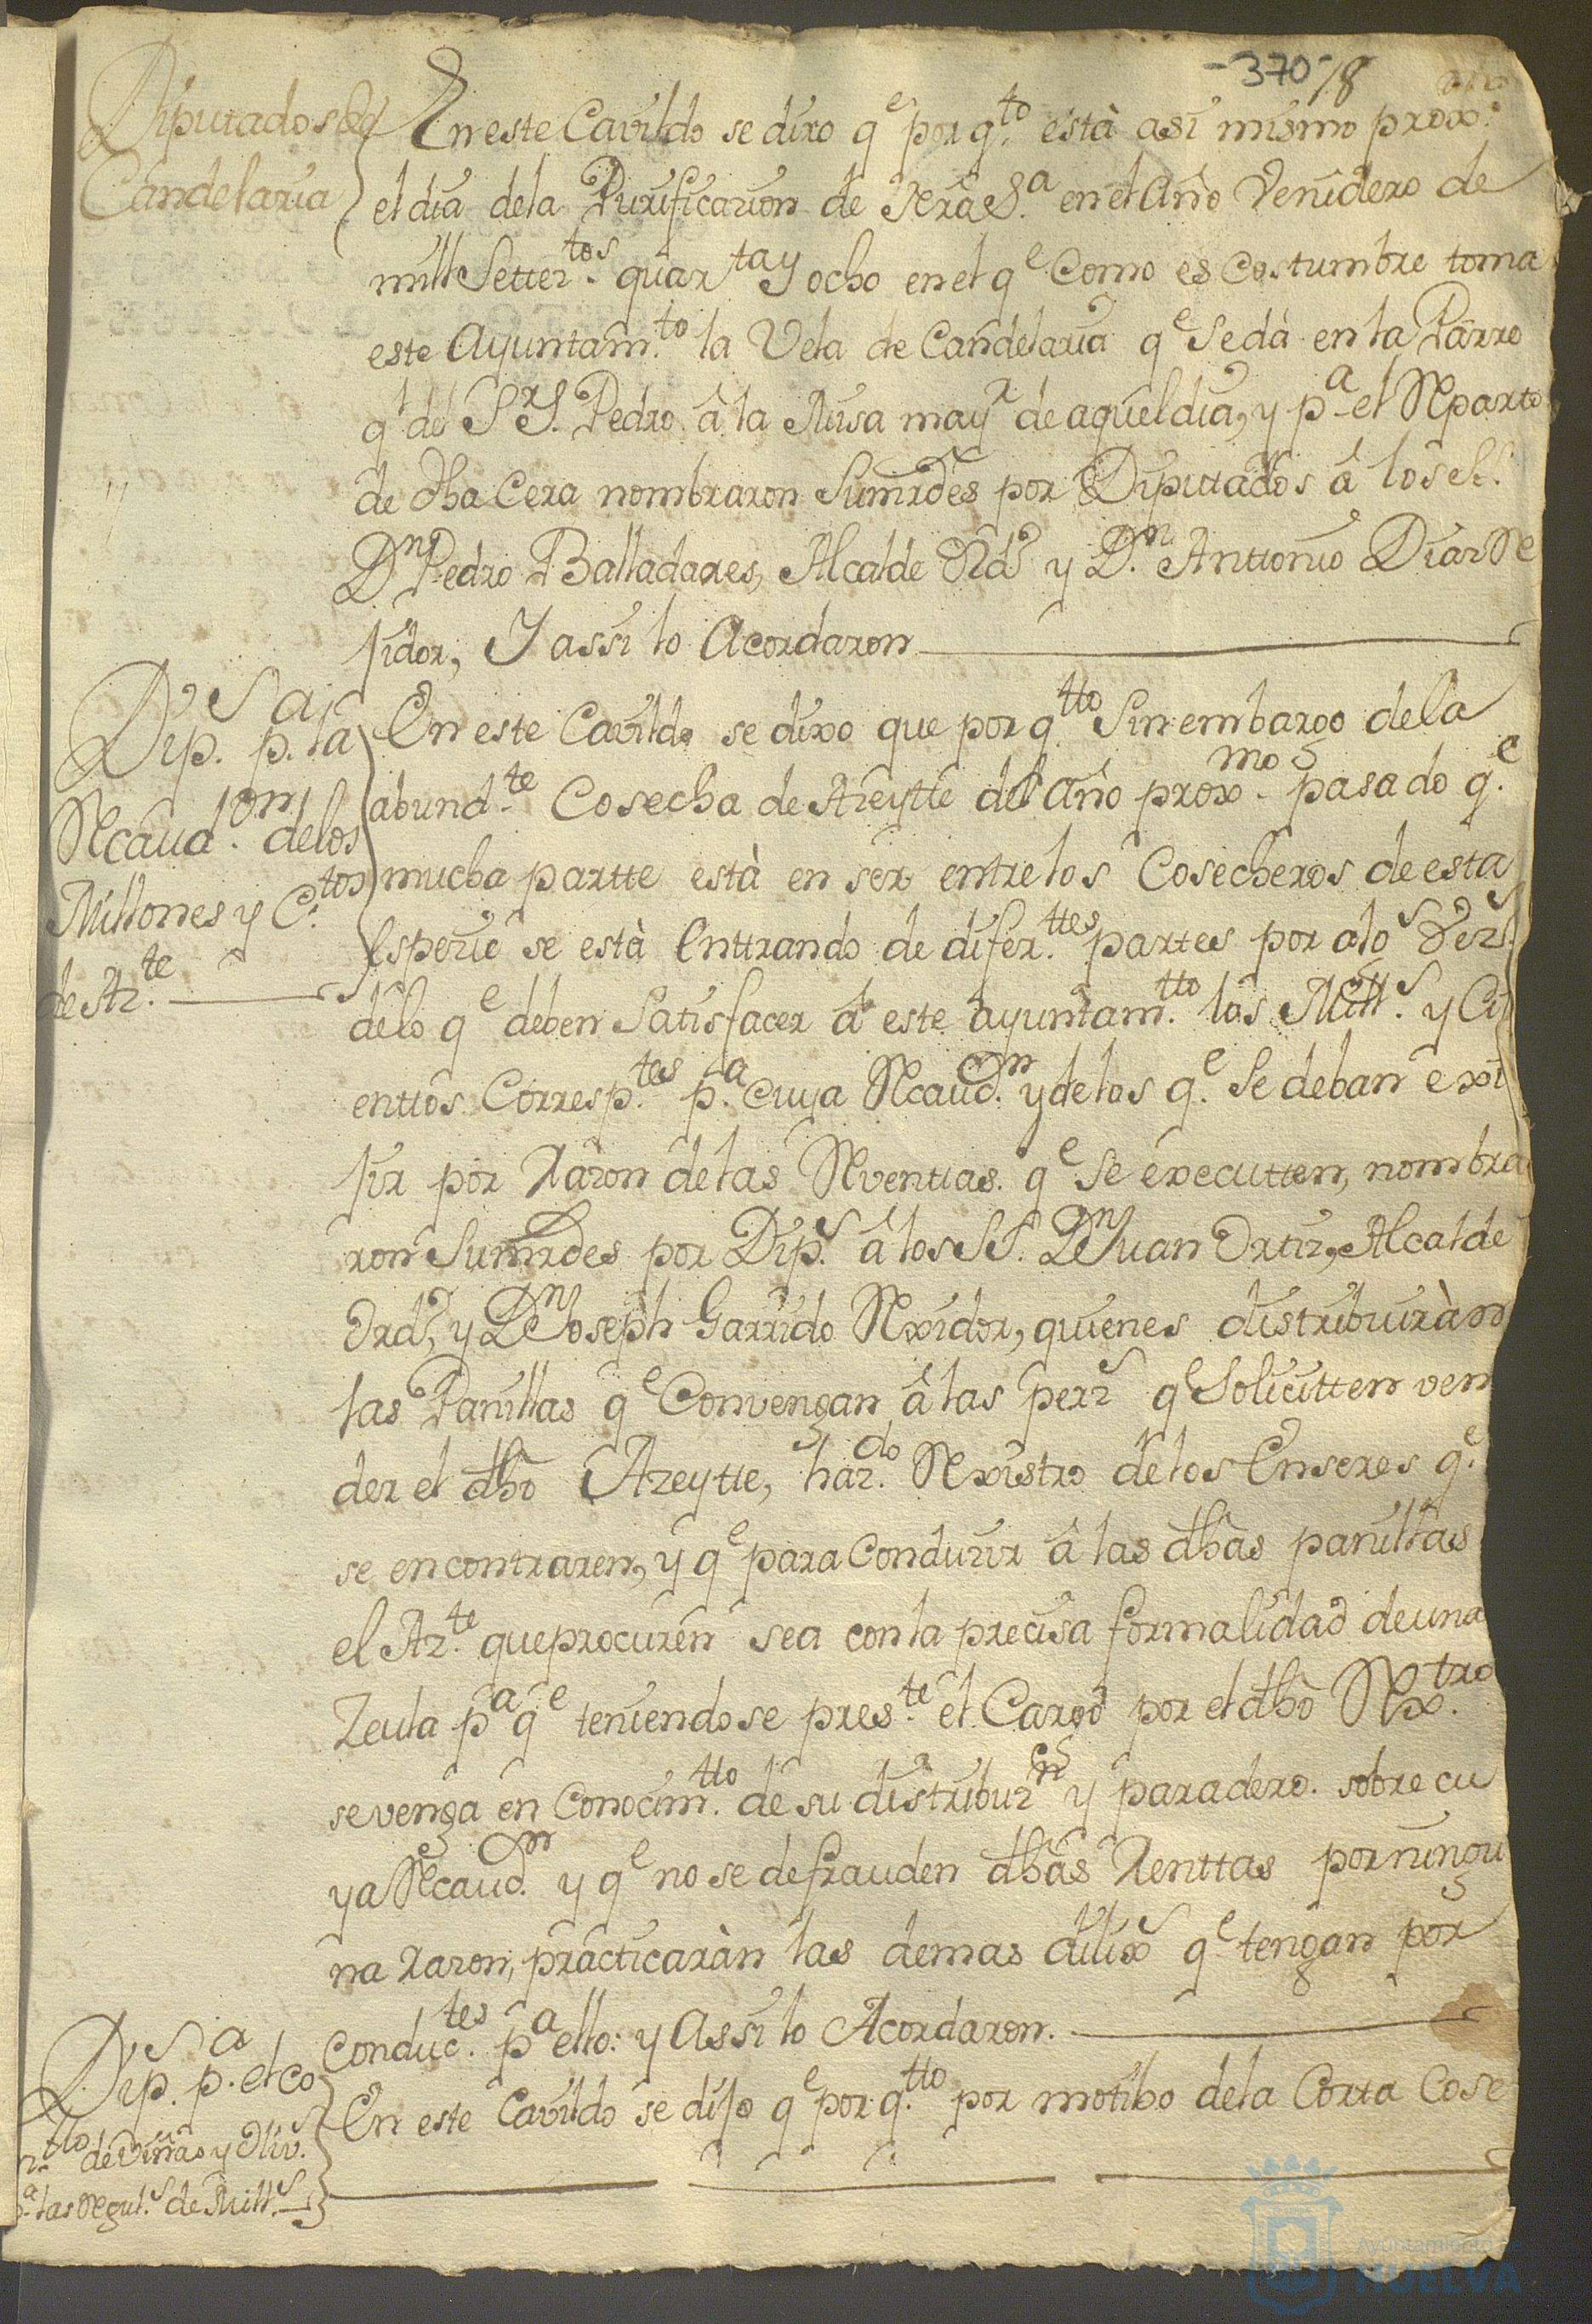 -370/8
Diputados de
Candelaria
En este Cavildo se dixo q^e por q.^to està asi mismo prox.^o
el dia dela Purificacion de Nrã S.^a en el Año Venidero de
mill Setez.^tos quar^ta y ocho en el q^e Como es Costumbre toma
este Ayuntam.^to la Vela de Candelaria q^e se dà en la Parro
q^l de S.^r S. Pedro à la Misa may^r de aquel dia, y p^a el Reparto
de dha Cera nombraron Sumrdes por Diputtados à los SS.
D^n Pedro Balladares, Alcalde Ord^o y D.^n Anttonio Diaz Re
jidor, Y assi lo Acordaron
Dip.^s p.^a la
Recaud.^on delos
Millones y C.^tos
de Az.^te
En este Cavildo se dixo que por q^tto Sin embargo dela
abund.^te Cosecha de Azeytte del año prox.^mo pasado q.^e
mucha partte està en ser entre los Cosecheros de esta
especie se està Enttrando de difer.^ttes partes por alg^s Vez.^s
delo q^e deben Satisfacer à este ayuntam.^tto los Mill.^s y Ci
enttos Corresp.^tes p.^a cuya Recaud.^on y de los q.^e Se deban exi
jir por Razon de las Reventtas q^e Se executten, nombra
ron Sumrdes por Dip.^s à los SS. D^n Juan Ortiz, Alcalde
Ord^o, y D^n Joseph Garrido Rexidor, quienes distribuiràn
las Panillas q^e Convengan à las pers^s q^e Soliciten ven
der el dho Azeytte, haz.^do Rexistro de los Enseres q.^e
se encontraren, y q^e para Conducir à las dhas panillas
el Az.^te que procuren sea con la precisa formalidad de una
Zeula p^a q^e teniendose pres.^te el Cargo por el dho Rex.^tro
se venga en Conocim.^tto de su distribuz^on y paradero. sobre cu
ya Recaud.^on y q^e no se defrauden dhas Renttas por ningu
na razon, practicaràn las demas dilix^s q^e tengan por
Conduc.^tes p^a ello: y Assi lo Acordaron.
Dip.^s p.^a el co
n.^tto de Viñas y Oliv.^s
p.^a las Regul.^s de Mill.^s
En este Cavildo se dijo q^e por q.^tto por motibo dela Corta Cose
Ayuntamiento de
HUELVA